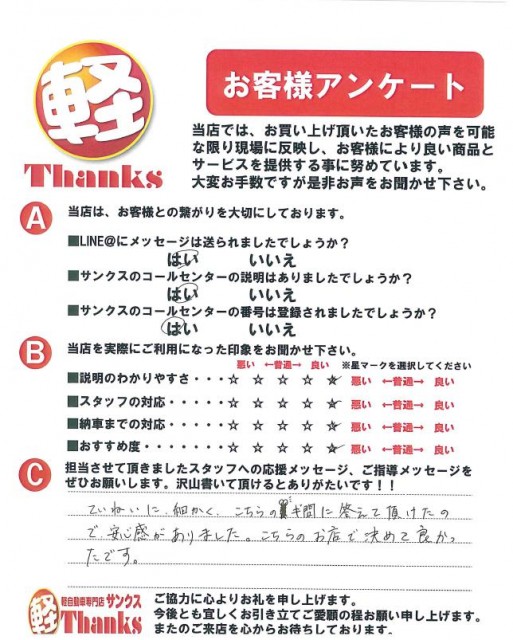 軽
Thanks
お客様アンケート
当店では、お買い上げ頂いたお客様の声を可能
な限り現場に反映し、お客様により良い商品と
サービスを提供する事に努めています。
大変お手数ですが是非お声をお聞かせ下さい。
A 当店は、お客様との繋がりを大切にしております。
■LINE@にメッセージは送られましたでしょうか?
はい いいえ
■サンクスのコールセンターの説明はありましたでしょうか?
はい いいえ
■サンクスのコールセンターの番号は登録されましたでしょうか?
はい いいえ
B 当店を実際にご利用になった印象をお聞かせ下さい。
悪い ←普通→ 良い ※星マークを選択してください
■説明のわかりやすさ・・・・☆ ☆ ☆ ☆ ☆ 悪い ←普通→ 良い
■スタッフの対応・・・・・・☆ ☆ ☆ ☆ ☆ 悪い ←普通→ 良い
■納車までの対応・・・・・・☆ ☆ ☆ ☆ ☆ 悪い ←普通→ 良い
■おすすめ度・・・・・・・・☆ ☆ ☆ ☆ ☆ 悪い ←普通→ 良い
C 担当させて頂きましたスタッフへの応援メッセージ、ご指導メッセージを
ぜひお願いします。沢山書いて頂けるとありがたいです!!
ていねいに、細かく、こちらのギ問に答えて頂けたの
で、安心感がありました。こちらのお店で決めて良かっ
たです。
軽 軽自動車専門店 サンクス
Thanks
ご協力に心よりお礼を申し上げます。
今後とも宜しくお引き立てご愛顧の程お願い申し上げます。
またのご来店を心からお待ちしております。